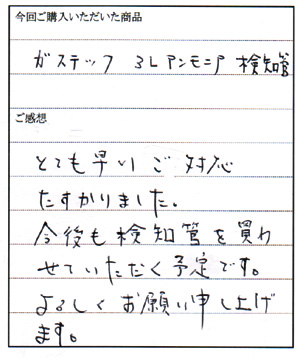 今回ご購入いただいた商品
ガステック 3Lアンモニア 検知管
ご感想
とても早いご対応
たすかりました。
今後も検知管を買わ
せていただく予定です。
よろしくお願い申し上げ
ます。